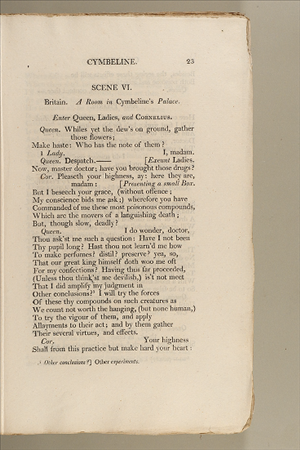 CYMBELINE. 23
SCENE VI.
Britain. A Room in Cymbeline's Palace.
Enter Queen, Ladies, and CORNELIUS.
Queen. Whiles yet the dew's on ground, gather
those flowers;
Make haste: Who has the note of them?
1 Lady. I, madam.
Queen. Despatch.—— [Exeunt Ladies.
Now, master doctor; have you brought those drugs?
Cor. Pleaseth your highness, ay: here they are,
madam: [Presenting a small Box.
But I beseech your grace, (without offence;
My conscience bids me ask;) wherefore you have
Commanded of me these most poisonous compounds,
Which are the movers of a languishing death;
But, though slow, deadly?
Queen. I do wonder, doctor,
Thou ask'st me such a question: Have I not been
Thy pupil long? Hast thou not learn'd me how
To make perfumes? distil? preserve? yea, so,
That our great king himself doth woo me oft
For my confections? Having thus far proceeded,
(Unless thou think'st me devilish,) is't not meet
That I did amplify my judgment in
Other conclusions?³ I will try the forces
Of these thy compounds on such creatures as
We count not worth the hanging, (but none human,)
To try the vigour of them, and apply
Allayments to their act; and by them gather
Their several virtues, and effects.
Cor. Your highness
Shall from this practice but make hard your heart:
³ Other conclusions?] Other experiments.